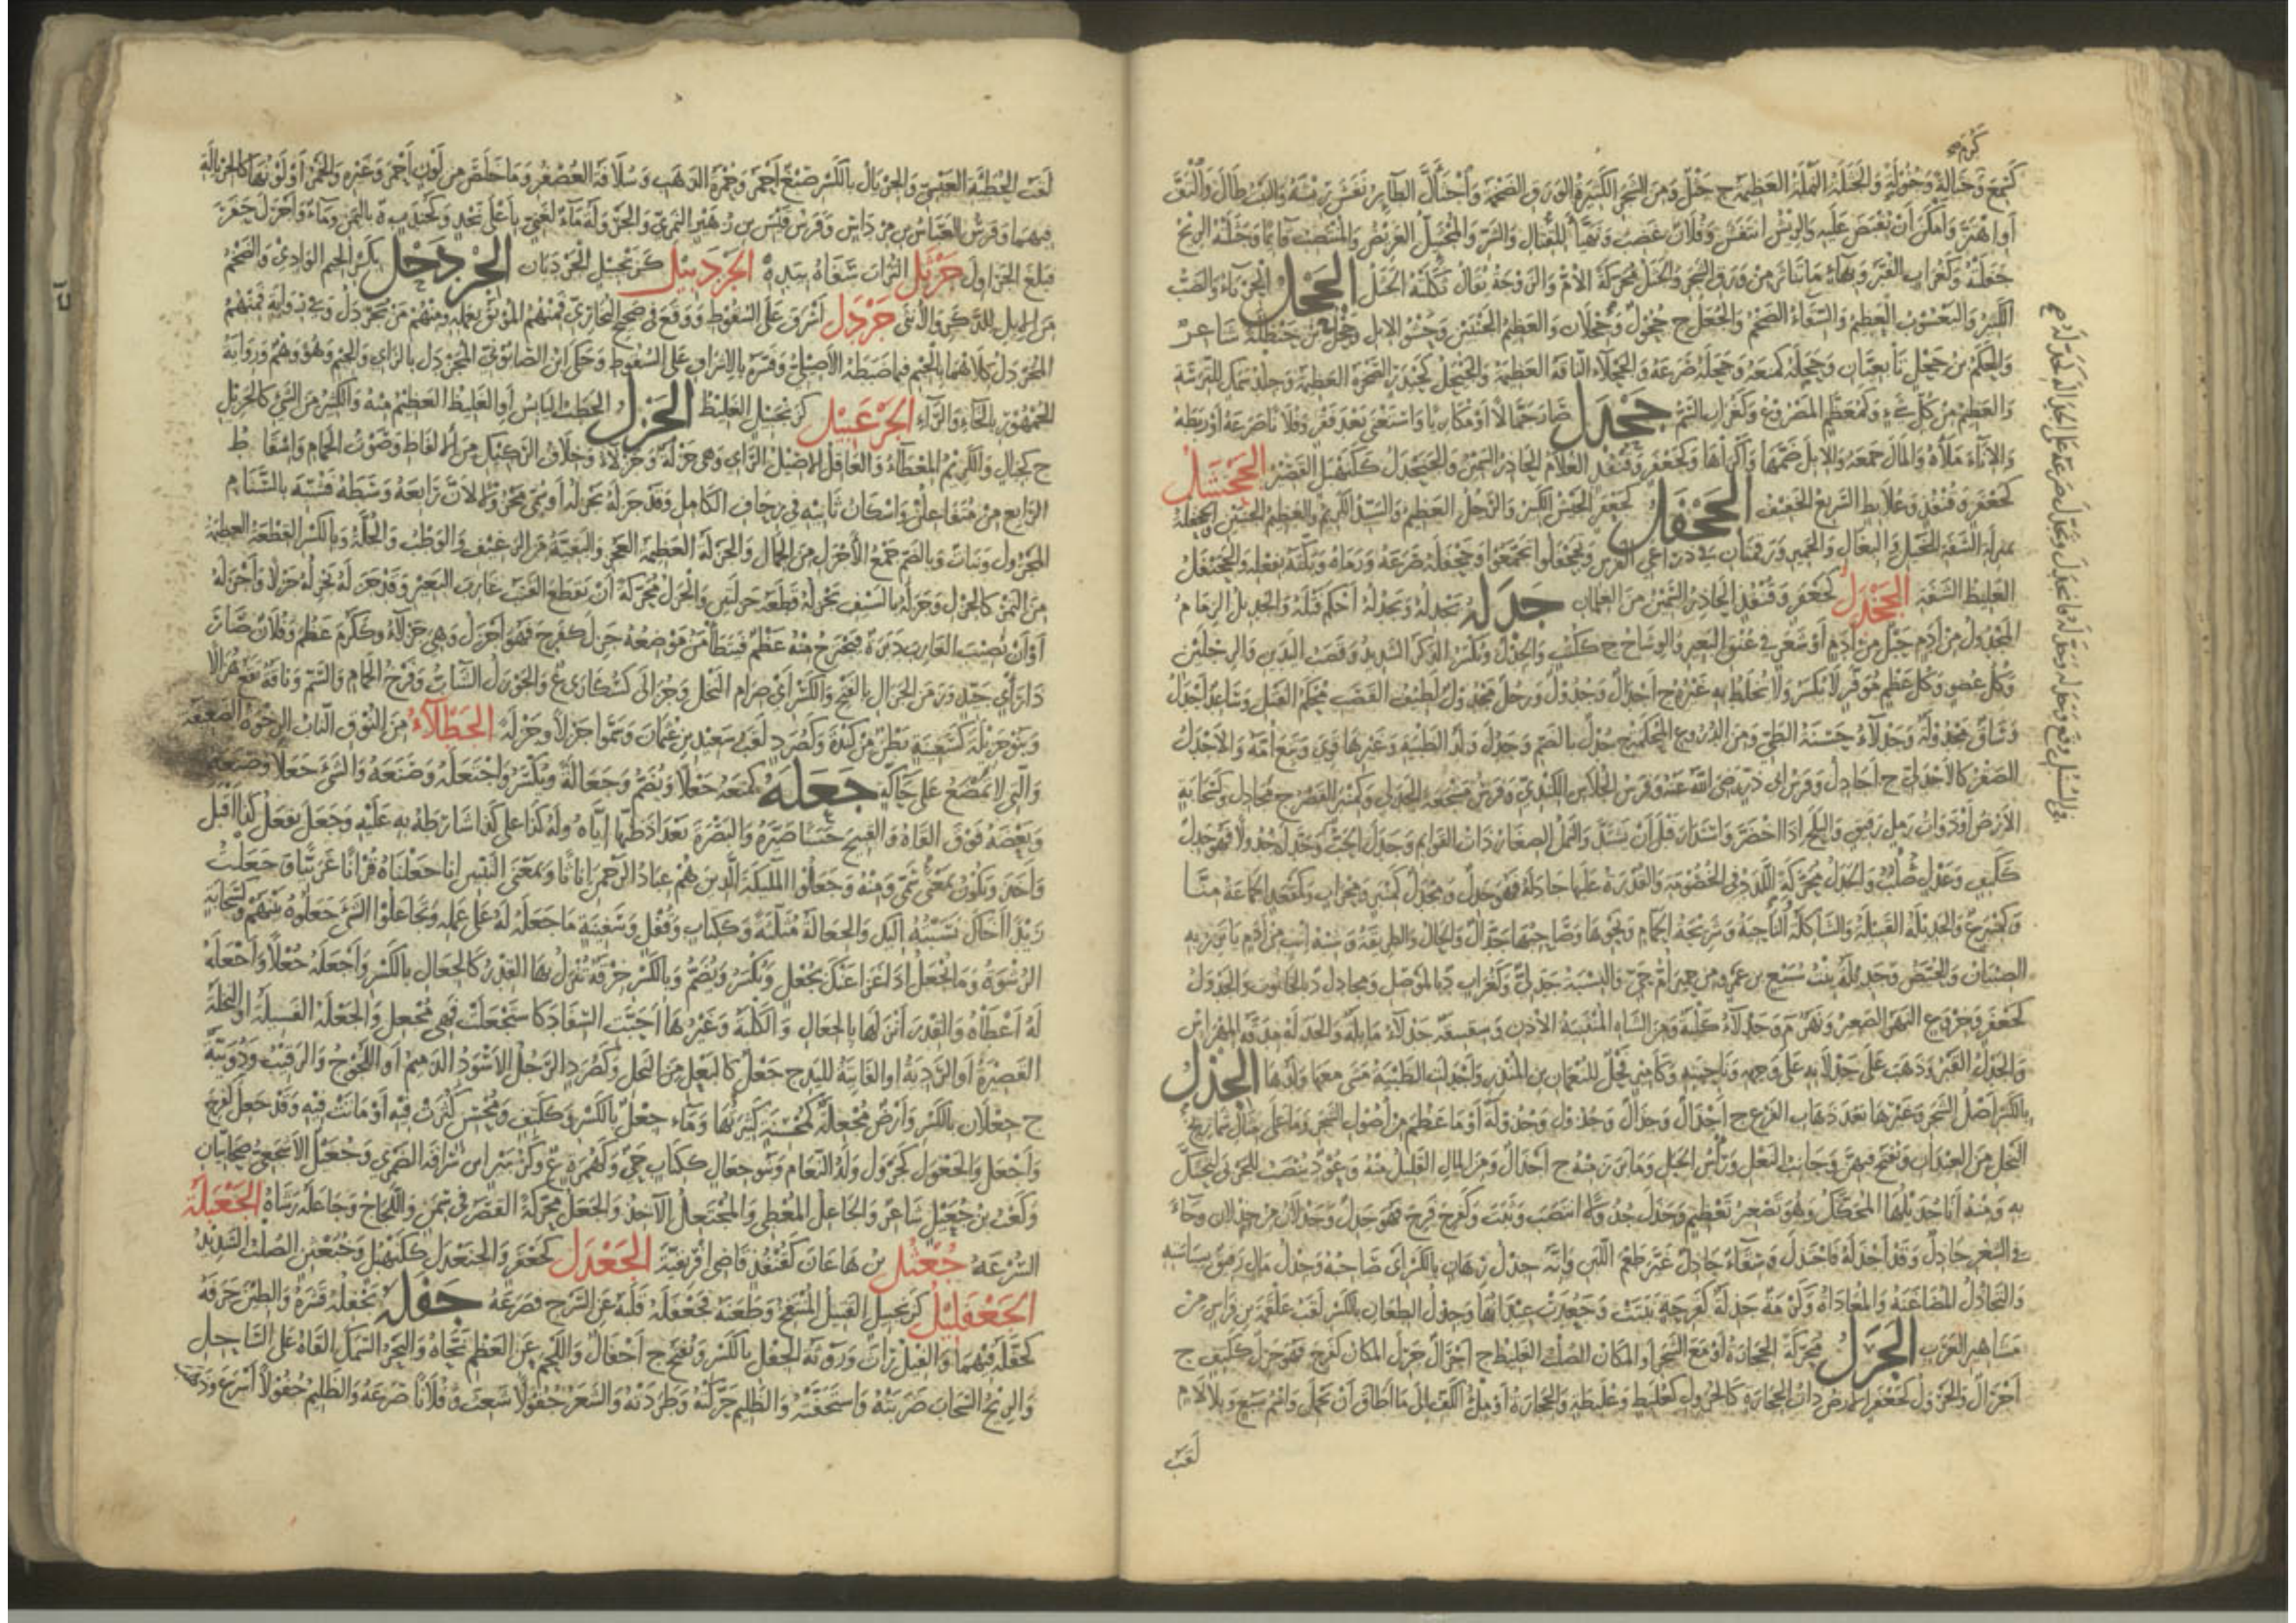 كرم صح
كسمع وجثالة وجثولة والجثلة النملة العظيمة ج جثل ومن الشجر الكبيرة الورق الضخمة واجثأل الطائر نفش ريشه والنبت طال والتف
او اهتز وامكن ان يقبض عليه والريش انتفش وفلان غضب وتهيأ للقتال والشر والمجثئل العريض والمنتصب قائما وجثلته الريح
جفلته وكغراب القبر وبهاء ما تناثر من ورق الشجر والجثل محركة الام والزوجة يقال ثكلته الجثل الجحل الحرباء والضب
الكبير واليعسوب العظيم والسقاء الضخم والجعل ج جحول وجحلان والعظيم الجنبين وحشو الابل وجحل بن حنظلة شاعر
والحكم بن جحل تابعيان وجحله كمنعه وجحله صرعه والجحلاء الناقة العظيمة والجيحل كحيدر الصخرة العظيمة وجلد سمك للترسة
والعظيم من كل شيء وكمعظم المصروع وكغراب السم جحدل صار جمالا او مكاريا واستغنى بعد فقر وفلانا صرعه او ربطه
والاناء ملأه والمال جمعه والابل ضمها واكراها وكجعفر وقنفذ الغلام الحادر السمين والجحنجدل كسفرجل القصير الجحشل
كجعفر وقنفذ وعلابط السريع الخفيف الجحفل كجعفر الجيش الكبير والرجل العظيم والسيد الكريم والعظيم الجنبين والجحفلة
بمنزلة الشفة للخيل والبغال والحمير ورقمتان في ذراعي الفرس وتجحفلوا تجمعوا وجحفله صرعه ورماه وبكته بفعله والجحنفل
الغليظ الشفة الجخدل كجعفر وقنفذ الحادر السمين من الغلمان جدله يجدله ويجدله احكم فتله والجديل الزمام
المجدول من ادم وحبل من ادم او شعر في عنق البعير والوشاح ج ككتب والجدل ويكسر الذكر الشديد وقصب اليدين والرجلين
وكل عضو وكل عظم موفر لا يكسر ولا يخلط به غيره ج اجدال وجدول ورجل مجدول لطيف القصب محكم الفتل وساعد اجدل
وساق مجدولة وجدلاء حسنة الطي ومن الدروع المحكمة ج جدل بالضم وجدل ولد الظبية وغيرها قوي وتبع امه والاجدل
الصقر كالاجدلي ج اجادل وفرس ابي ذر رضي الله عنه وفرس الجلاس الكندي وفرس مشجعة الجدلي وكمنبر القصر ج مجادل وكسحابة
الارض او ذات رمل رقيق والبلح اذا اخضر واستدار قبل ان يشتد والنمل الصغار ذات القوائم وجدل الحب وجد له جدولا فهو جدل
ككتف وعدل صلب والجدل محركة اللدد في الخصومة والقدرة عليها جادله فهو جدل ومجدل كمنبر ومحراب وكمقعد الجماعة منا
وكشريح والجديلة القبيلة والشاكلة والناحية وشريجة الحمام ونحوها وصاحبها جدال والحال والطريقة وشبه اتب من ادم يأتزر به
الصبيان والحيض وجديلة بنت سبيع بن عمرو من حمير ام حي والنسبة جدلي وكغراب د بالموصل ومجادل د بالخابور والجدول
كجعفر وخروع النهر الصغير ونهر م وجدلاء كلبة ومن الشاء المتثنية الاذن وشقشقة جدلاء مائلة والجدلة مدقة المهراس
والجدل القبر وذهب على جدلائه على وجهه وناحيته وكامير فحل للنعمان بن المنذر واجدلت الظبية مشى معها ولدها الجذل
بالكسر اصل الشجر وغيرها بعد ذهاب الفرع ج اجذال وجذال وجذول وجذولة او ما عظم من اصول الشجر وما على مثال شماريخ
النخل من العيدان ويفتح فيهن وجانب النعل ورأس الجبل وما برز منه ج اجذال ومن المال القليل منه وعود ينصب للجربى لتحتك
به ومنه انا جذيلها المحكك وهو تصغير تعظيم وجذل جذولا انتصب وثبت وكفرح فرح فهو جذل وجذلان من جذلان وجاء
في الشعر جاذل وقد اجذله فاجتذل وسقاء جاذل غير طعم اللبن وانه جذل رهان بالكسر اي صاحبه وجذل مال رفيق بسياسته
والتجاذل المضاغنة والمعاداة وكرمة جذلة كفرحة نبتت وجعدت عيدانها وجذل الطعان بالكسر لقب علقمة بن فراس من
مشاهير العرب الجرل محركة الحجارة او مع الشجر او المكان الصلب الغليظ ج اجرال جرل المكان كفرح فهو جرل ككتف ج
اجرال والجرول كجعفر الارض ذات الحجارة كالجرول كعلبط وعلبطة والحجارة او ملء الكف الى ما اطاق ان يحمل واسم سبع وبلا لام
لقب
لقب الحطيئة العبسي والجريال بالكسر صبغ احمر وحمرة الذهب وسلافة العصفر وما خلص من لون احمر وغيره والخمر او لونها كالجريالة
فيهما وفرس العباس بن مرداس وفرس قيس بن زهير النمري والجرولة ماءة لغني باعلى نجد وكجندب ة باليمن وماء واجرل حفر
فبلغ الجراول جرثل التراب سفاه بيده الجردبيل كزنجبيل الجردبان الجردحل بكسر الجيم الوادي والضخم
من الابل للذكر والانثى جردل اشرف على السقوط ووقع في صحيح البخاري فمنهم الموبق بعمله ومنهم من يجردل وفي رواية فمنهم
المجردل كلاهما بالجيم فيما ضبطه الاصيلي وفسره بالاشراف على السقوط وحكى ابن الصابوني المجزدل بالزاي والجيم وهو وهم ورواية
الجمهور بالخاء والراء الجرعبيل كزنجبيل الغليظ الجزل الحطب اليابس او الغليظ العظيم منه والكثير من الشيء كالجزيل
ج كجبال والكريم المعطاء والعاقل الاصيل الرأي وهي جزلة وجزلاء وخلاف الركيك من الالفاظ وصوت الحمام واسقاط
الرابع من متفاعلن واسكان ثانيه في زحاف الكامل وقد جزله يجزله او سمي مجزولا لان رابعه وسطه فشبه بالسنام
المجزول ونبات وبالضم جمع الاجزل من الجمال والجزلة العظيمة العجز والبقية من الرغيف والوطب والجلة وبالكسر القطعة العظيمة
من التمر كالجزل وجزله بالسيف يجزله قطعه جزلتين والجزل محركة ان يقطع القتب غارب البعير وقد جزله يجزله جزلا واجزله
او ان يصيب الغارب دبرة فيخرج منه عظم فيتطأمن موضعه جزل كفرح فهو اجزل وهي جزلاء وككرم عظم وفلان صار
ذا رأي جيد وزمن الجزال بالفتح والكسر اي صرام النخل وجزالى كسكارى ع والجوزل الشاب وفرخ الحمام والسم وناقة تقع هزالا
وبنو جزيلة كسفينة بطن من كندة وكصرد لقب سعيد بن عثمان وسموا جزلا وجزلة الجطلاء من النوق الناب الرخوة الضعيفة
والتي لا تمضغ على حاكة جعله كمنعه جعلا ويضم وجعالة ويكسر واجتعله وصنعه والشيء جعلا وضعه
وبعضه فوق القاه والقبيح حسنا صيره والبصرة بغداذ ظنها اياه وله كذا على كذا شارطه به عليه وجعل يفعل كذا اقبل
واخذ ويكون بمعنى سمى ومنه وجعلوا الملائكة الذين هم عباد الرحمن اناثا وبمعنى التبيين انا جعلناه قرانا عربيا وجعلت
زيدا اخاك نسبته اليك والجعالة مثلثة وككتاب وقفل وسفينة ما جعله له على عمله وتجاعلوا الشيء جعلوه بينهم وكسحابة
الرشوة وما تجعل اذا غزا عنك بجعل ويكسر ويضم وبالكسر خرقة تنزل بها القدر كالجعال بالكسر واجعله جعلا واجعله
له اعطاه والقدر انزلها بالجعال والكلبة وغيرها احبت السفاد كاستجعلت فهي مجعل والجعلة الفسيلة او النخلة
القصيرة او الردية او الفائتة لليد ج جعل كالبعل من النخل وكصرد الرجل الاسود الدميم او اللجوج والرقيب ودويبة
ج جعلان بالكسر وارض مجعلة كمحسنة كثيرتها وماء جعل بالكسر وككتف ومحسن كثرت فيه او ماتت فيه وقد جعل كفرح
واجعل والجعول كجرول ولد النعام وبنو جعال ككتاب حي وكهمزة ع وكزبير ابن سراقة الضمري وجعيل الاشجعي صحابيان
وكعب بن جعيل شاعر والجاعل المعطي والمجتعل الآخذ والجعل محركة القصر في سمن واللجاج وجاعله رشاه الجعبلة
السرعة جعثل بن هاعان كقنفذ قاضي افريقية الجعدل كجعفر والجنعدل كسفرجل وخبعثن الصلب الشديد
الجعفليل كزنجبيل القتيل المنتفخ وطعنه فجعفله قلبه عن السرج فصرعه جفله يجفله قشره والطين جرفه
كجفله فيهما والفيل راث وروثه الجفل بالكسر ويفتح ج اجفال واللحم عن العظم نحاه والبحر السمك القاه على الساحل
والريح السحاب ضربته واستخفته والظليم حركته وطردته والشعر جفولا شعث وفلانا صرعه والظليم جفولا اسرع وذهب